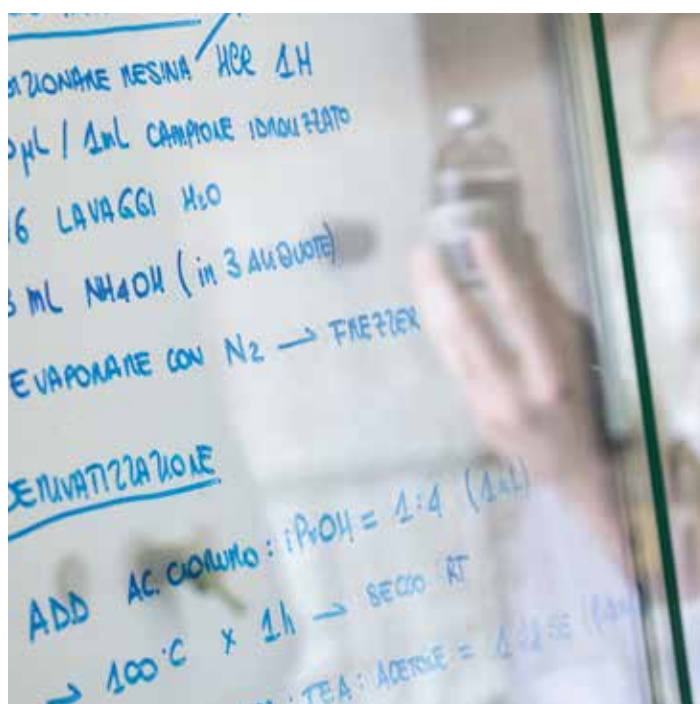 ZIONARE RESINA HCl 1M
µL / 1mL CAMPIONE IDROLIZZATO
6 LAVAGGI H2O
3 mL NH4OH (in 3 ALIQUOTE)
EVAPORARE CON N2 → FREZZER
DERIVATIZZAZIONE
ADD AC. CLORURO : iPrOH = 1:4 (1mL)
→ 100°C x 1h → SECCO RT
: TEA : ACETONE =